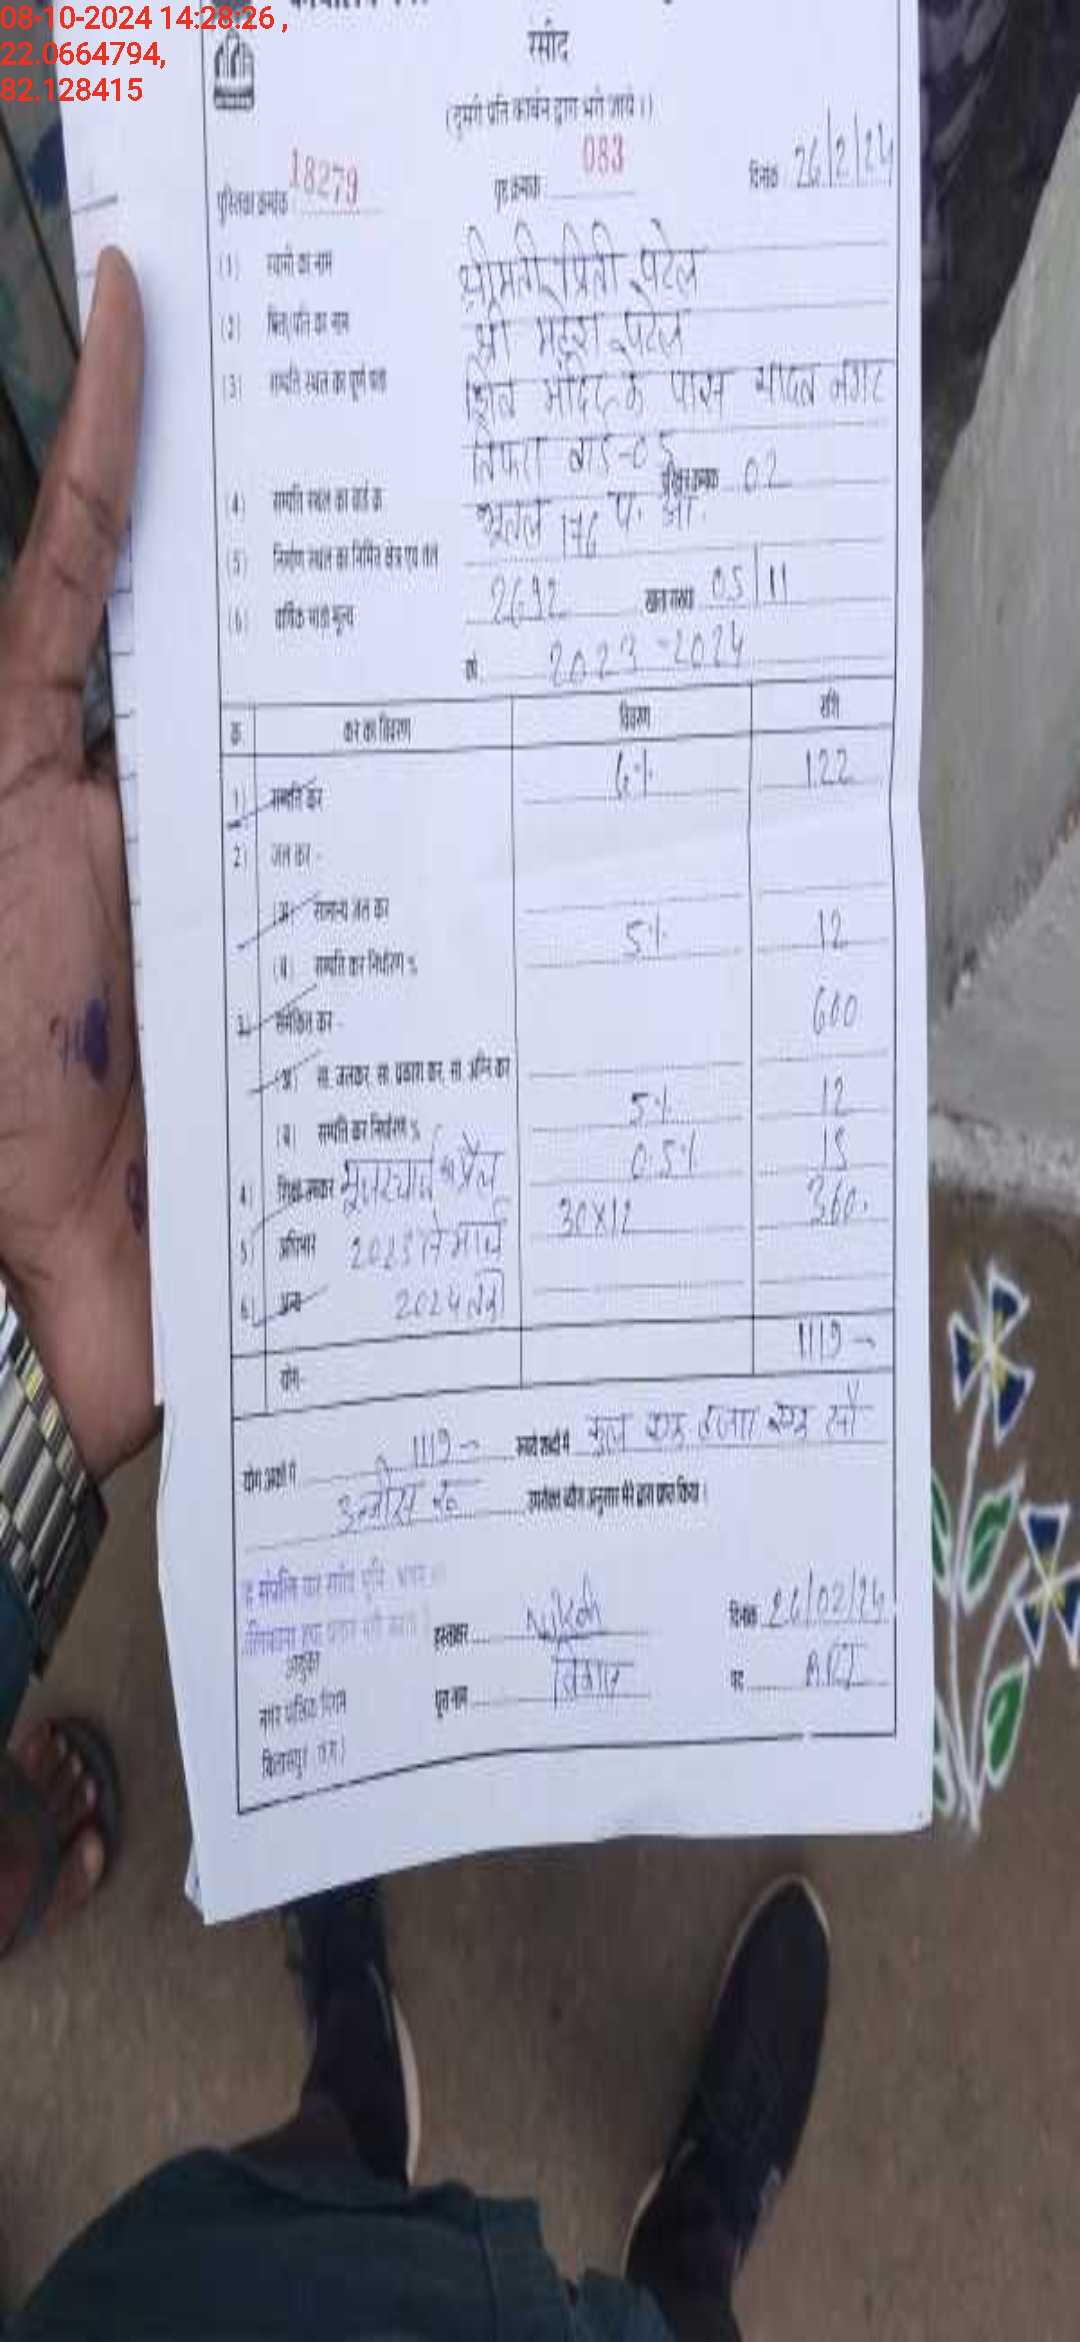 08-10-2024 14:28:26 ,
22.0664794,
82.128415
रसीद
(दूसरी प्रति कार्बन द्वारा भरी जाये।)
पुस्तिका क्रमांक 18279 पृष्ठ क्रमांक 083 दिनांक 26/2/24
(1) स्वामी का नाम श्रीमती प्रिती पटेल
(2) पिता/पति का नाम श्री महेश पटेल
(3) सम्पत्ति स्थल का पूर्ण पता शिव मंदिर के पास यादव नगर
तिफरा वार्ड-05
(4) सम्पत्ति स्थल का वार्ड क्र. 02
(5) निर्माण स्थल का निर्मित क्षेत्र एवं तल भूतल 176 प. आ.
(6) वार्षिक भाड़ा मूल्य 2692 05/11
वर्ष 2023-2024
क्र. कर का विवरण विवरण राशि
1) सम्पत्ति कर 6% 122
2) जल कर -
(अ) सामान्य जल कर
(ब) सम्पत्ति कर निर्धारण % 5% 12
3) समेकित कर - 600
(अ) सा. जलकर, सा. प्रकाश कर, सा. अग्नि कर
(ब) सम्पत्ति कर निर्धारण % 5% 12
4) शिक्षा उपकर 0.5% 13
5) अधिभार 2023 से मार्च 30x12 360
6) अन्य 2024 तक
योग- 1119
योग अंकों में 1119 रूपये शब्दों में कुल एक हजार एक सौ
उन्नीस रू. उपरोक्त योग अनुसार मेरे द्वारा प्राप्त किया।
हस्ताक्षर दिनांक 26/02/24
आयुक्त
नगर पालिक निगम पूरा नाम विकास पद
बिलासपुर (छ.ग.)